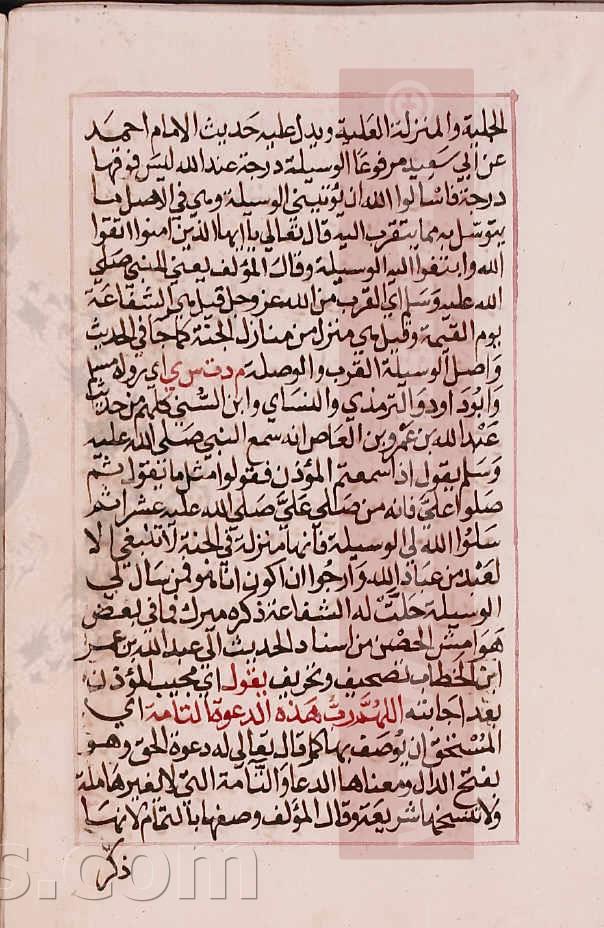 الجلية والمنزلة العلية ويدل عليه حديث الامام احمد
عن ابي سعيد مرفوعا الوسيلة درجة عند الله ليس فوقها
درجة فاسألوا الله ان يؤتيني الوسيلة وهي في الاصل ما
يتوسل به مما يتقرب اليه قال تعالى يا ايها الذين آمنوا اتقوا
الله وابتغوا اليه الوسيلة وقال المؤلف يعني النبي صلى
الله عليه وسلم اي القرب من الله عز وجل قيل هي الشفاعة
يوم القيمة وقيل هي منزلة من منازل الجنة كما جا في الحديث
واصل الوسيلة القرب والوصلة م د ت س ي اي رواه مسلم
وابو داود والترمذي والنساي وابن السني كلهم من حديث
عبد الله بن عمرو بن العاص انه سمع النبي صلى الله عليه
وسلم يقول اذا سمعتم المؤذن فقولوا مثل ما يقول ثم
صلوا علي فانه من صلى علي صلى الله عليه عشرا ثم
سلوا الله لي الوسيلة فانها منزلة في الجنة لا تنبغي الا
لعبد من عباد الله وارجوا ان اكون انا هو فمن سال لي
الوسيلة حلت له الشفاعة ذكره ميرك فما في بعض
هوامش الحصن من اسناد الحديث الى عبد الله بن عمر
ابن الخطاب تصحيف وتحريف يقول اي مجيب المؤذن
بعد اجابته اللهم رب هذه الدعوة التامة اي
المستحق ان يوصف بها كما قال تعالى له دعوة الحق وهو
بفتح الدال ومعناها الدعا والتامة التي لا لغيرها ملة
ولا تنسخها شريعة وقال المؤلف وصفها بالتمام لانها
ذكر
s.com